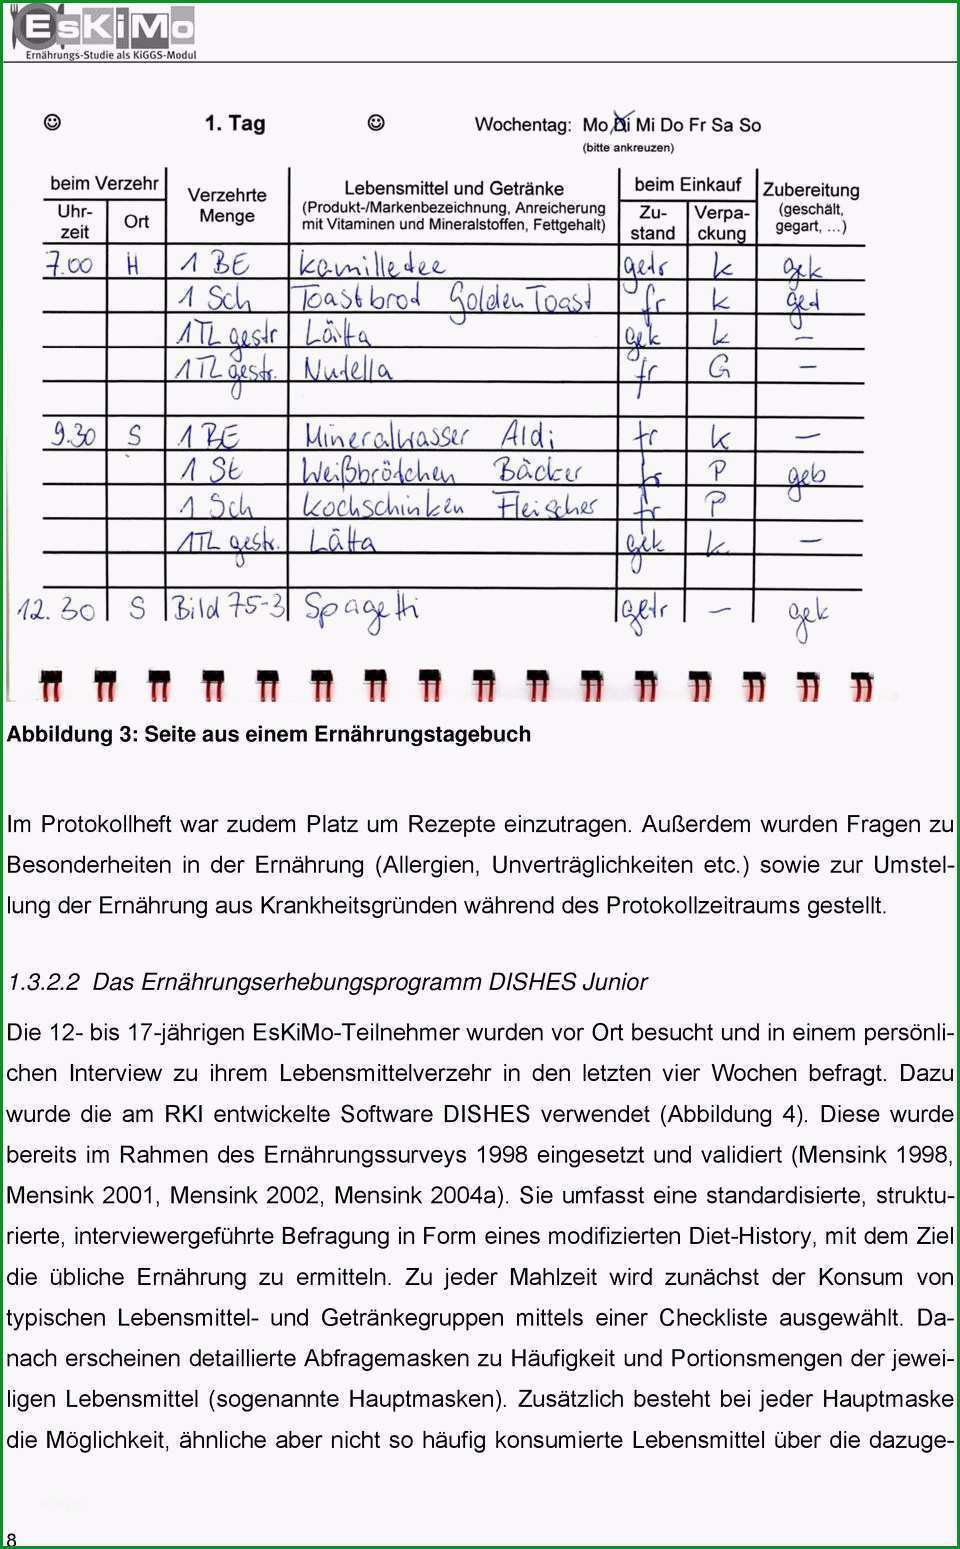 EsKiMo
Ernährungs-Studie als KiGGS-Modul
☺ 1. Tag ☺ Wochentag: Mo Di Mi Do Fr Sa So
(bitte ankreuzen)
beim Verzehr Verzehrte Menge Lebensmittel und Getränke (Produkt-/Markenbezeichnung, Anreicherung mit Vitaminen und Mineralstoffen, Fettgehalt) beim Einkauf Zubereitung (geschält, gegart, ...)
Uhr-zeit Ort Zu-stand Verpa-ckung
7.00 H 1 BE Kamilletee getr k gek
1 Sch Toastbrod Golden Toast fr k ged
1TL gestr Lätta gek k –
1TL gestr. Nutella fr G –
9.30 S 1 BE Mineralwasser Aldi fr k –
1 St Weißbrötchen Bäcker fr P geb
1 Sch Kochschinken Fleischer fr P
1TL gestr. Lätta gek k. –
12.30 S Bild 75-3 Spagetti getr – gek
Abbildung 3: Seite aus einem Ernährungstagebuch
Im Protokollheft war zudem Platz um Rezepte einzutragen. Außerdem wurden Fragen zu
Besonderheiten in der Ernährung (Allergien, Unverträglichkeiten etc.) sowie zur Umstel-
lung der Ernährung aus Krankheitsgründen während des Protokollzeitraums gestellt.
1.3.2.2 Das Ernährungserhebungsprogramm DISHES Junior
Die 12- bis 17-jährigen EsKiMo-Teilnehmer wurden vor Ort besucht und in einem persönli-
chen Interview zu ihrem Lebensmittelverzehr in den letzten vier Wochen befragt. Dazu
wurde die am RKI entwickelte Software DISHES verwendet (Abbildung 4). Diese wurde
bereits im Rahmen des Ernährungssurveys 1998 eingesetzt und validiert (Mensink 1998,
Mensink 2001, Mensink 2002, Mensink 2004a). Sie umfasst eine standardisierte, struktu-
rierte, interviewergeführte Befragung in Form eines modifizierten Diet-History, mit dem Ziel
die übliche Ernährung zu ermitteln. Zu jeder Mahlzeit wird zunächst der Konsum von
typischen Lebensmittel- und Getränkegruppen mittels einer Checkliste ausgewählt. Da-
nach erscheinen detaillierte Abfragemasken zu Häufigkeit und Portionsmengen der jewei-
ligen Lebensmittel (sogenannte Hauptmasken). Zusätzlich besteht bei jeder Hauptmaske
die Möglichkeit, ähnliche aber nicht so häufig konsumierte Lebensmittel über die dazuge-
8